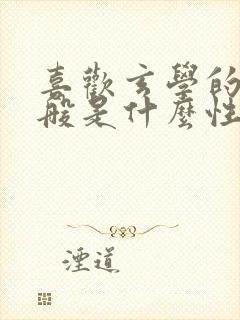 喜歡玄學的
般是什麼性
湮道